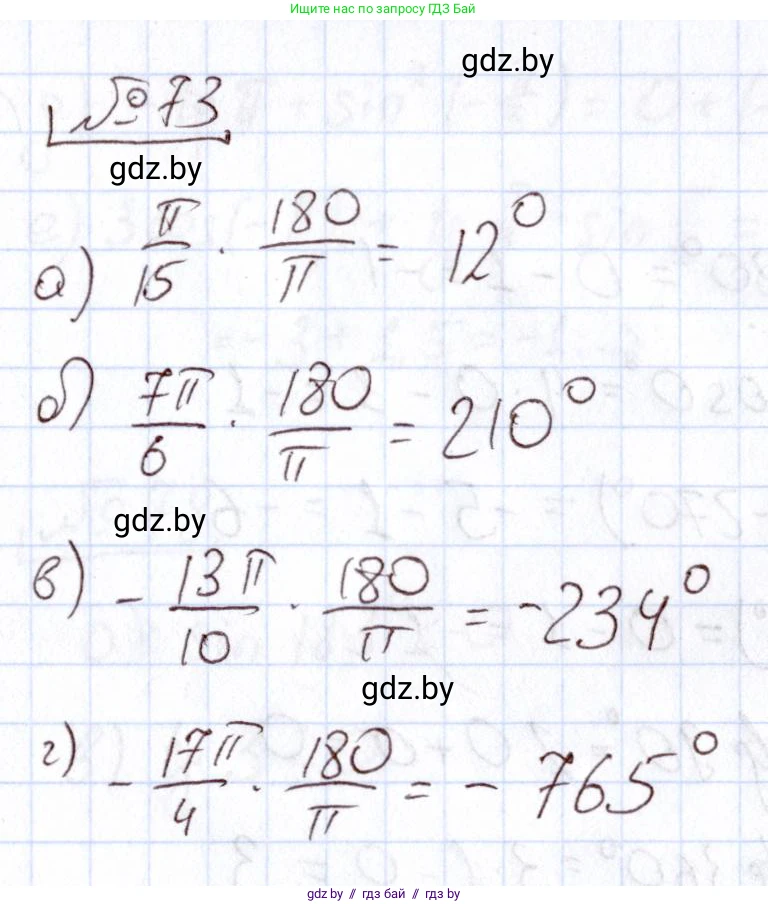 Ищите нас по запросу ГДЗ Бай
gdz.by
№ 73
gdz.by
а) π/15 · 180/π = 12°
б) 7π/6 · 180/π = 210°
gdz.by
в) - 13π/10 · 180/π = -234°
gdz.by
г) - 17π/4 · 180/π = - 765°
gdz.by // гдз бай // гдз by